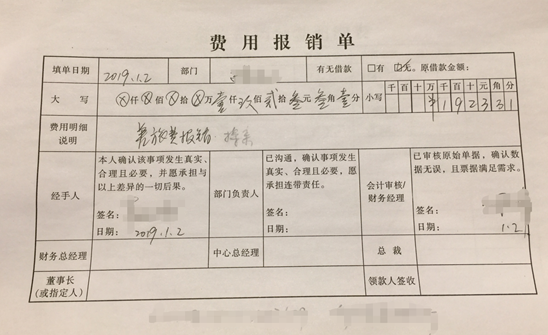 费用报销单
填单日期 2019.1.2 部门 有无借款 □有 ☑无。原借款金额：
大写 ⊗仟⊗佰⊗拾⊗万壹仟玖佰贰拾叁元叁角壹分 小写 千百十万千百十元角分
¥192331
费用明细说明 差旅费报销
经手人 本人确认该事项发生真实、合理且必要，并愿承担与以上差异的一切后果。 签名： 日期：2019.1.2
部门负责人 已沟通，确认事项发生真实、合理且必要，愿承担连带责任。 签名： 日期：
会计审核/财务经理 已审核原始单据，确认数据无误，且票据满足需求。 签名： 日期：1.2
财务总经理 中心总经理 总裁
董事长(或指定人) 领款人签收